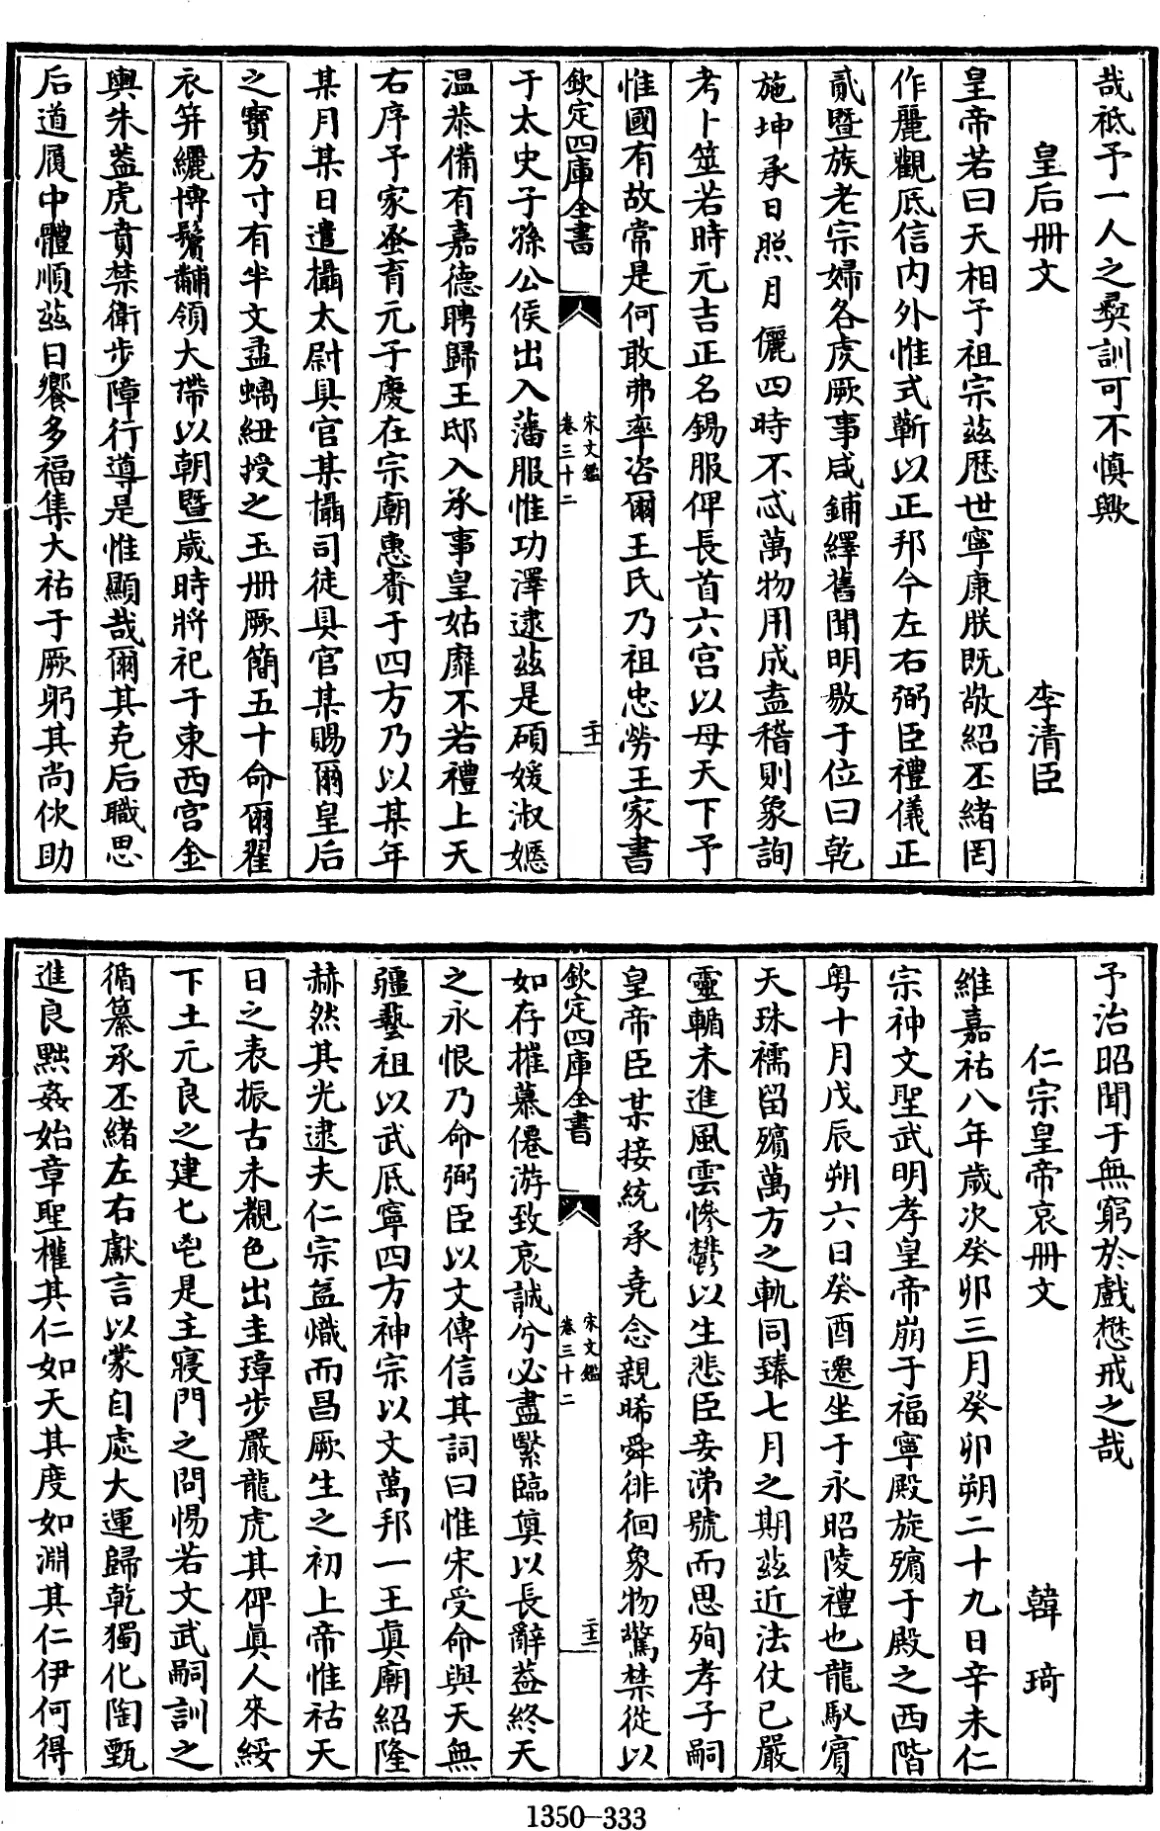 哉祗予一人之彜訓可不慎歟
皇后冊文　李清臣
皇帝若曰天相予祖宗茲歷世寧康朕既敬紹丕緒罔
作麗觀厎信内外惟式蘄以正邦今左右弼臣禮儀正
貳暨族老宗婦各䖍厥事咸鋪繹舊聞明敭于位曰乾
施坤承日照月儷四時不忒萬物用成盍稽則象詢
考卜筮若時元吉正名錫服俾長首六宫以母天下予
惟國有故常是何敢弗率咨爾王氏乃祖忠勞王家書
欽定四庫全書　宋文鑑　卷三十二
于太史子孫公侯出入藩服惟功澤逮茲是碩媛淑嫕
温恭備有嘉德聘歸王邸入承事皇姑靡不若禮上天
右序予家蚤育元子慶在宗廟惠賚于四方乃以某年
某月某日遣攝太尉具官某攝司徒具官某賜爾皇后
之寶方寸有半文盝螭紐授之玉冊厥簡五十命爾翟
衣笄纚博鬢黼領大帶以朝暨歲時將祀于東西宫金
輿朱葢虎賁禁衛步障行導是惟顯哉爾其克后職思
后道履中體順茲日饗多福集大祐于厥躬其尚佽助
予治昭聞于無窮於戲懋戒之哉
仁宗皇帝哀冊文　韓琦
維嘉祐八年歲次癸卯三月癸卯朔二十九日辛未仁
宗神文聖武明孝皇帝崩于福寧殿旋殯于殿之西階
粤十月戊辰朔六日癸酉遷坐于永昭陵禮也龍馭賔
天珠襦留殯萬方之軌同臻七月之期茲近法仗已嚴
靈輴未進風雲慘鬱以生悲臣妾涕號而思殉孝子嗣
皇帝臣某接統承堯念親晞舜徘徊象物驚禁從以
欽定四庫全書　宋文鑑　卷三十二
如存摧慕僊游致哀誠兮必盡緊臨奠以長辭益終天
之永恨乃命弼臣以文傳信其詞曰惟宋受命與天無
疆藝祖以武厎寧四方神宗以文萬邦一王真廟紹隆
赫然其光逮夫仁宗益熾而昌厥生之初上帝惟祜天
日之表振古未覩色出圭璋步嚴龍虎其俾眞人來綏
下土元良之建七鬯是主寢門之問惕若文武嗣訓之
循纂承丕緒左右獻言以蒙自處大運歸乾獨化陶甄
進良黜姦始章聖權其仁如天其度如淵其仁伊何得
1350-333